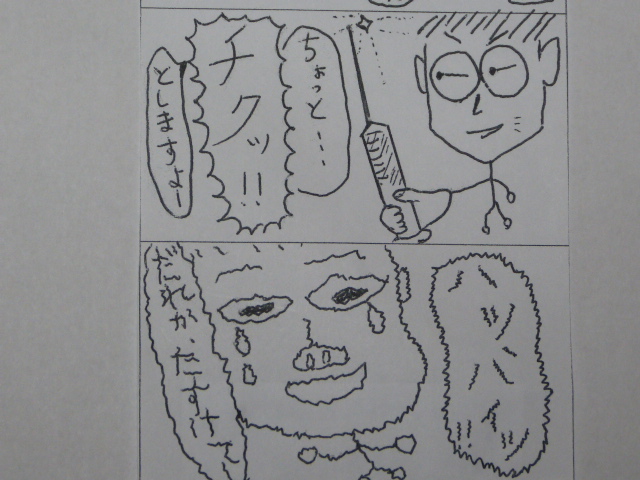 ちょっと…
チクッ!!
としますよー
だれか、たすけて